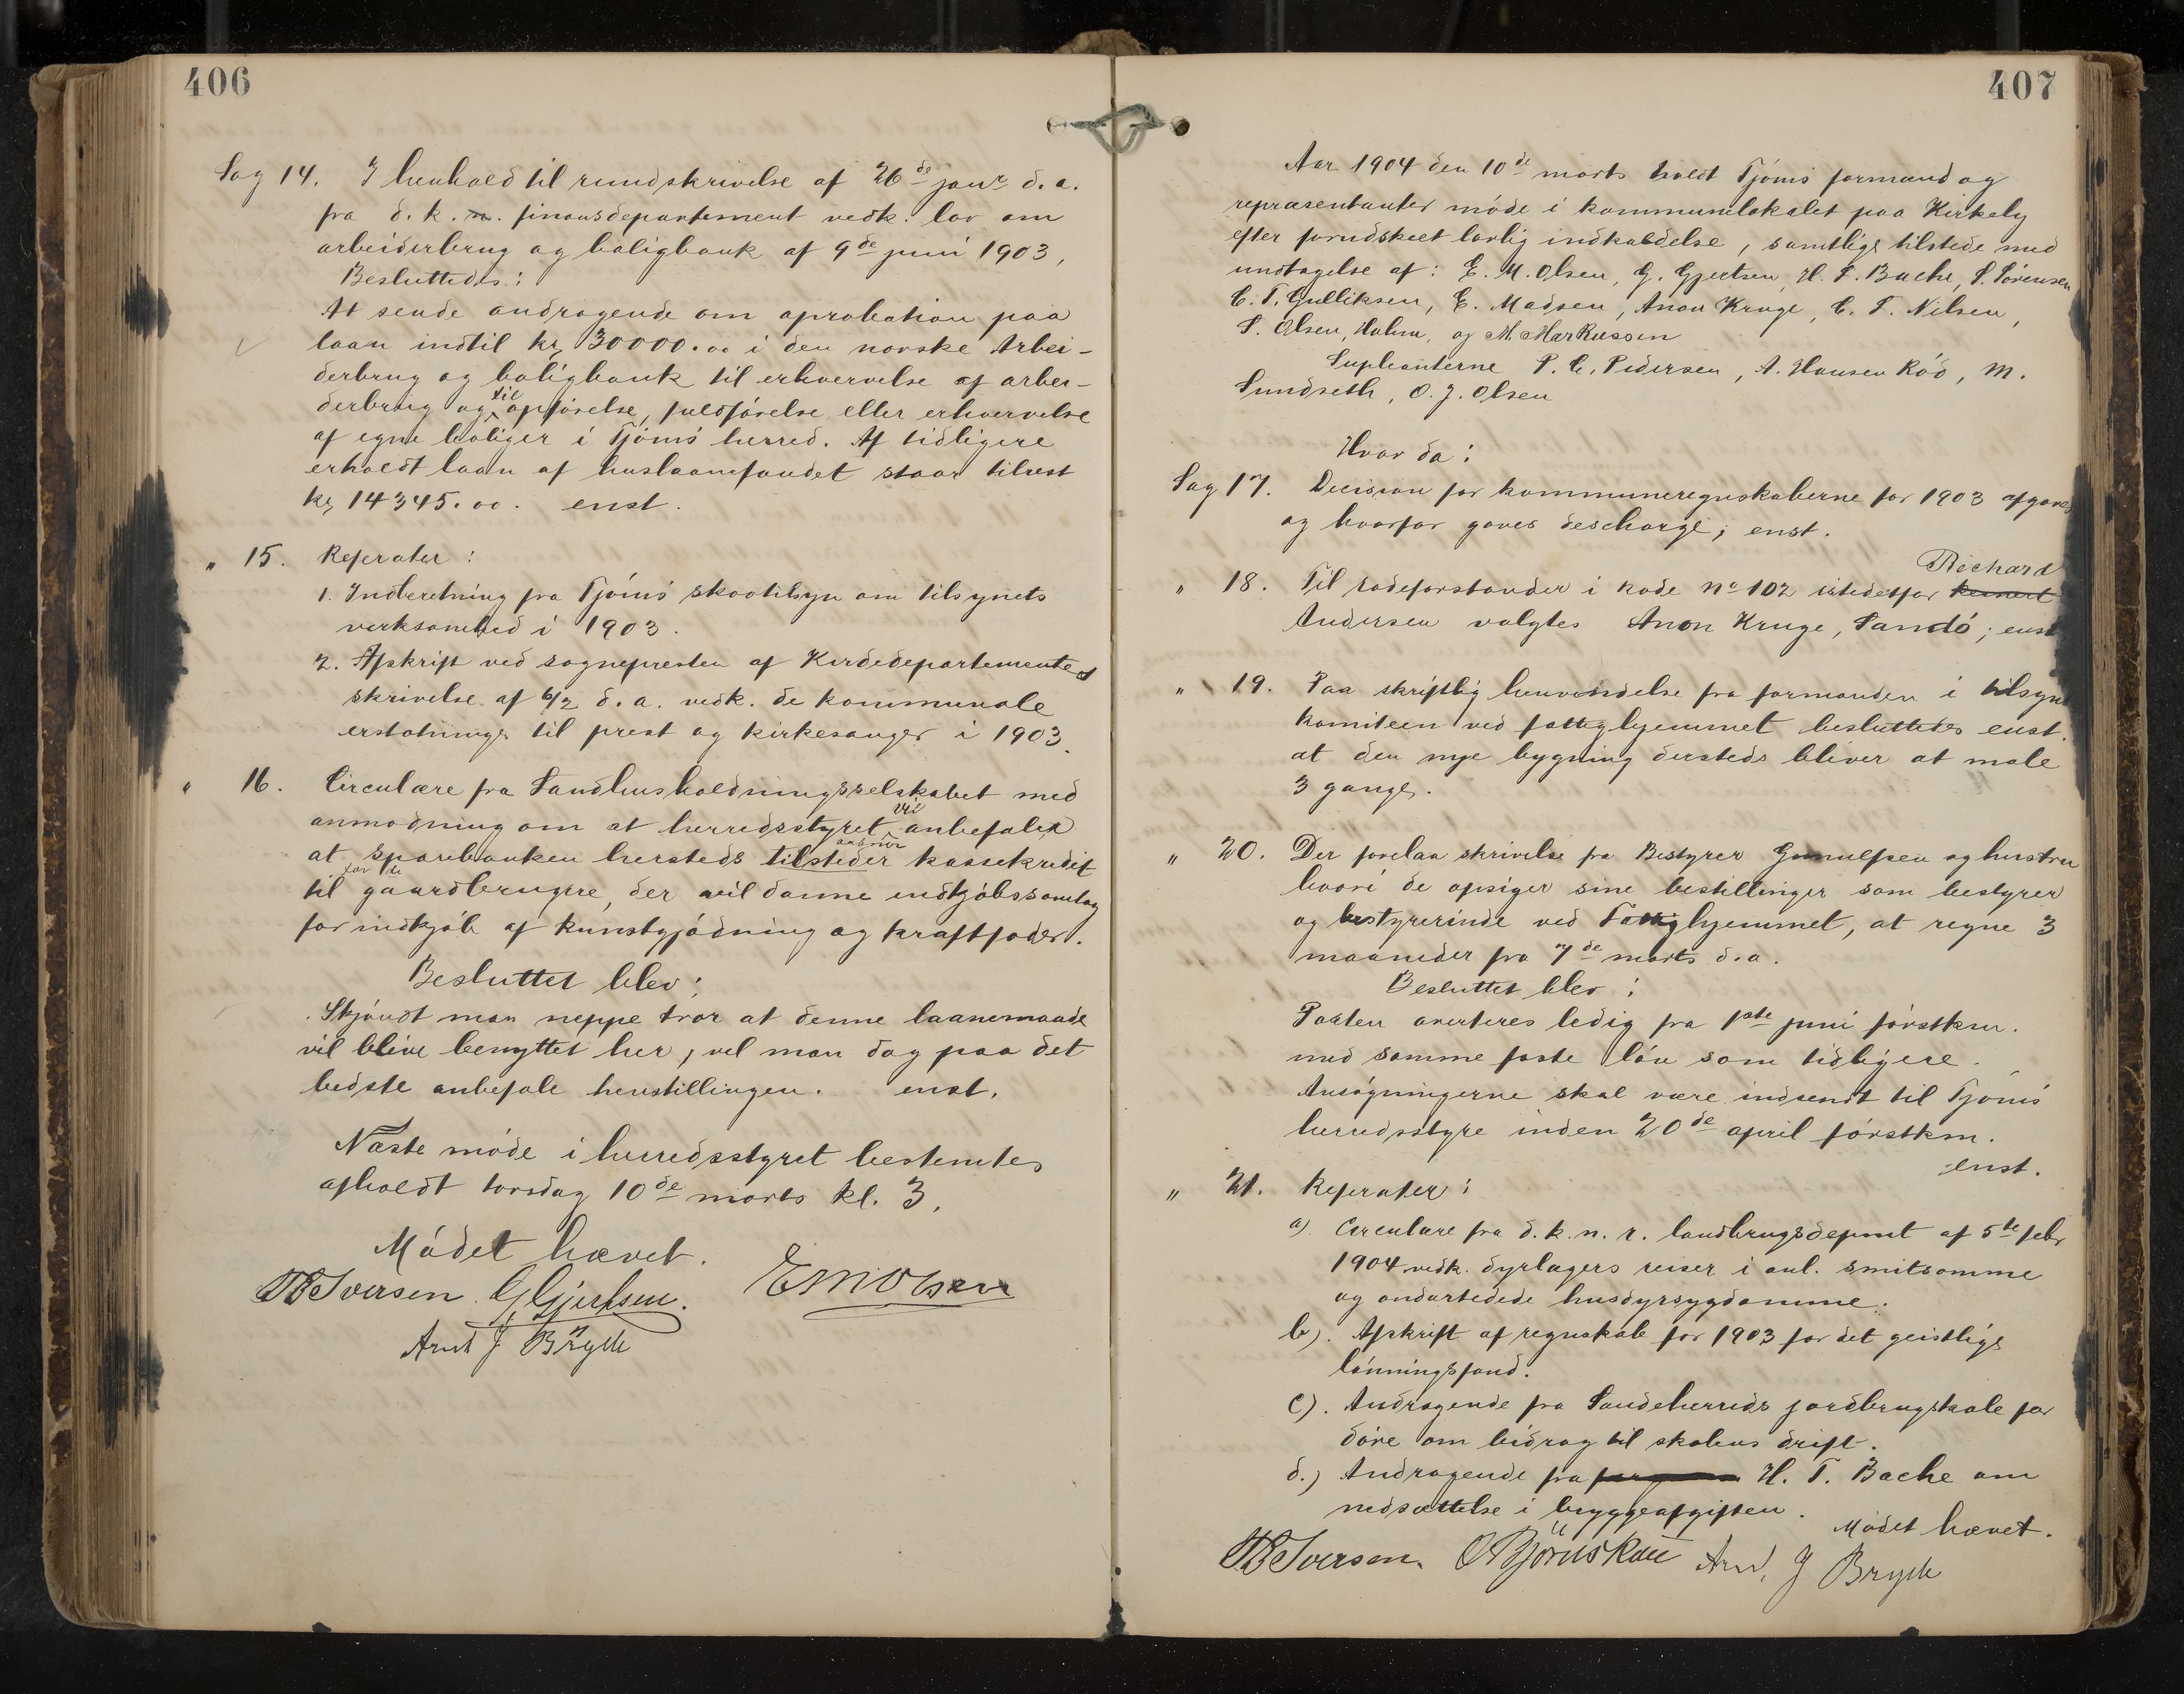 406
Sag 14. I henhold til rundskrivelse af 26de janr d. a.
fra d. k. n. finansdepartement vedk. lov om
arbeiderbrug og boligbank af 9de juni 1903,
Besluttedes:
At sende andragende om aprobation paa
laan indtil kr. 30000.00 i den norske Arbei-
derbrug og boligbank til erhvervelse af arbei-
derbrug og til opførelse, fuldførelse eller erhvervelse
af egne boliger i Tjømø herred. Af tidligere
erholdt laan af huslaanefondet staar tilrest
kr. 14345.00. enst.
" 15. Referater:
1. Indberetning fra Tjømø skovtilsyn om tilsynets
verksomhed i 1903.
2. Afskrift ved sognepresten af Kirkedepartementets
skrivelse af 6/2 d. a. vedk. de kommunale
erstatninger til prest og kirkesanger i 1903.
" 16. Circulære fra Landhusholdningsselskabet med
anmodning om at herredsstyret vil anbefale
at sparebanken hersteds aabner kassekredit
for de
til gaardbrugere, der vil danne indkjøbssamlag
for indkjøb af kunstgjødning og kraftfoder.
Besluttet blev:
Skjøndt man neppe tror at denne laanemaade
vil blive benyttet her, vil man dog paa det
bedste anbefale henstillingen. enst.
Næste møde i herredsstyret bestemtes
afholdt torsdag 10de marts kl. 3.
Mødet hævet.
Iversen G Gjertsen. E M Olsen
Arnt J Brych
407
Aar 1904 den 10de marts holdt Tjømø formand og
repræsentanter møde i kommunelokalet paa Kirkely
efter forudskeet lovlig indkaldelse, samtlige tilstede med
undtagelse af: E. M. Olsen, G. Gjertsen, H. T. Bache, S. Sørensen
C. T. Gulliksen, E. Madsen, Anon Kruge, C. F. Nilsen,
S. Olsen, Holm, og M. Markussen
Suplianterne P. C. Pedersen, A. Hansen Rød, M.
Sundseth, O. J. Olsen
Hvor da:
Sag 17. Decision for kommuneregnskaberne for 1903 afgaves
og hvorfor gaves descharge; enst.
Richard
" 18. Til rodeforstander i rode No 102 istedetfor
Andersen valgtes Anon Kruge, Sandø; enst
" 19. Paa skriftlig henvendelse fra formanden i tilsyns
komiteen ved fattighjemmet besluttedes enst.
at den nye bygning dersteds bliver at male
3 gange.
" 20. Der forelaa skrivelse fra Bestyrer Gunulfsen og hustru
hvori de opsiger sine bestillinger som bestyrer
og bestyrerinde ved Fattighjemmet, at regne 3
maaneder fra 7de marts d. a.
Besluttet blev:
Posten averteres ledig fra 1ste juni førstkm.
med samme faste løn som tidligere.
Ansøgningerne skal være indsendt til Tjømø
herredsstyre inden 20de april førstkm.
enst.
" 21. Referater:
a) Circulære fra d. k. n. r. landbrugsdepmt af 5te febr
1904 vedk. dyrlægers reiser i anl. smitsomme
og ondartedede husdyrsygdomme.
b). Afskrift af regnskab for 1903 for det geistlige
lønningsfond.
c). Andragende fra Sandeherreds jordbrugskole for
døve om bidrag til skolens drift.
d.) Andragende fra H. T. Bache om
nedsættelse i bryggeafgiften.
Mødet hævet.
Iversen. O Bjørnskau Arnt, J Brych